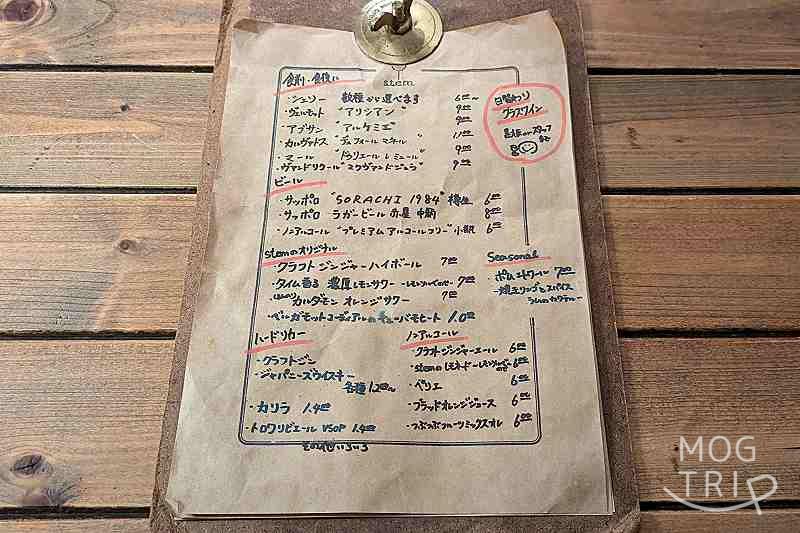 stem
食前・食後に
・シェリー 数種から選べます 6⁰⁰~
・ヴェルモット "アリシアン" 9⁰⁰
・アブサン "アルケミエ" 9⁰⁰
・カルヴァドス "デュフォール マネール" 11⁰⁰
・マール "ドゥリエール レミュール" 9⁰⁰
9⁰⁰
日替わり
グラスワイン
黒板orスタッフ
ビール
・サッポロ "SORACHI 1984" 樽生 6⁰⁰
・サッポロ ラガービール 赤星 中瓶 8⁰⁰
・ノンアルコール "プレミアムアルコールフリー" 小瓶 6⁰⁰
stemのオリジナル
・クラフトジンジャーハイボール 7⁰⁰
・タイム香る 濃厚レモンサワー 7⁰⁰
・カルダモン オレンジサワー 7⁰⁰
・ベルガモットコーディアルの キューバモヒート 1.0⁰⁰
Seasonal
ポム エトワール 7⁰⁰
ハードリカー
・クラフトジン
・ジャパニーズウイスキー
各種 1.2⁰⁰~
・カリラ 1.4⁰⁰
・トロワリビエール VSOP 1.4⁰⁰
ノンアルコール
・クラフトジンジャーエール 6⁰⁰
・stemのレモネード 6⁰⁰
・ペリエ 6⁰⁰
・ブラッドオレンジジュース 6⁰⁰
・つぶつぶフルーツミックスオレ 6⁰⁰
その他いろいろ
MOG
TRIP